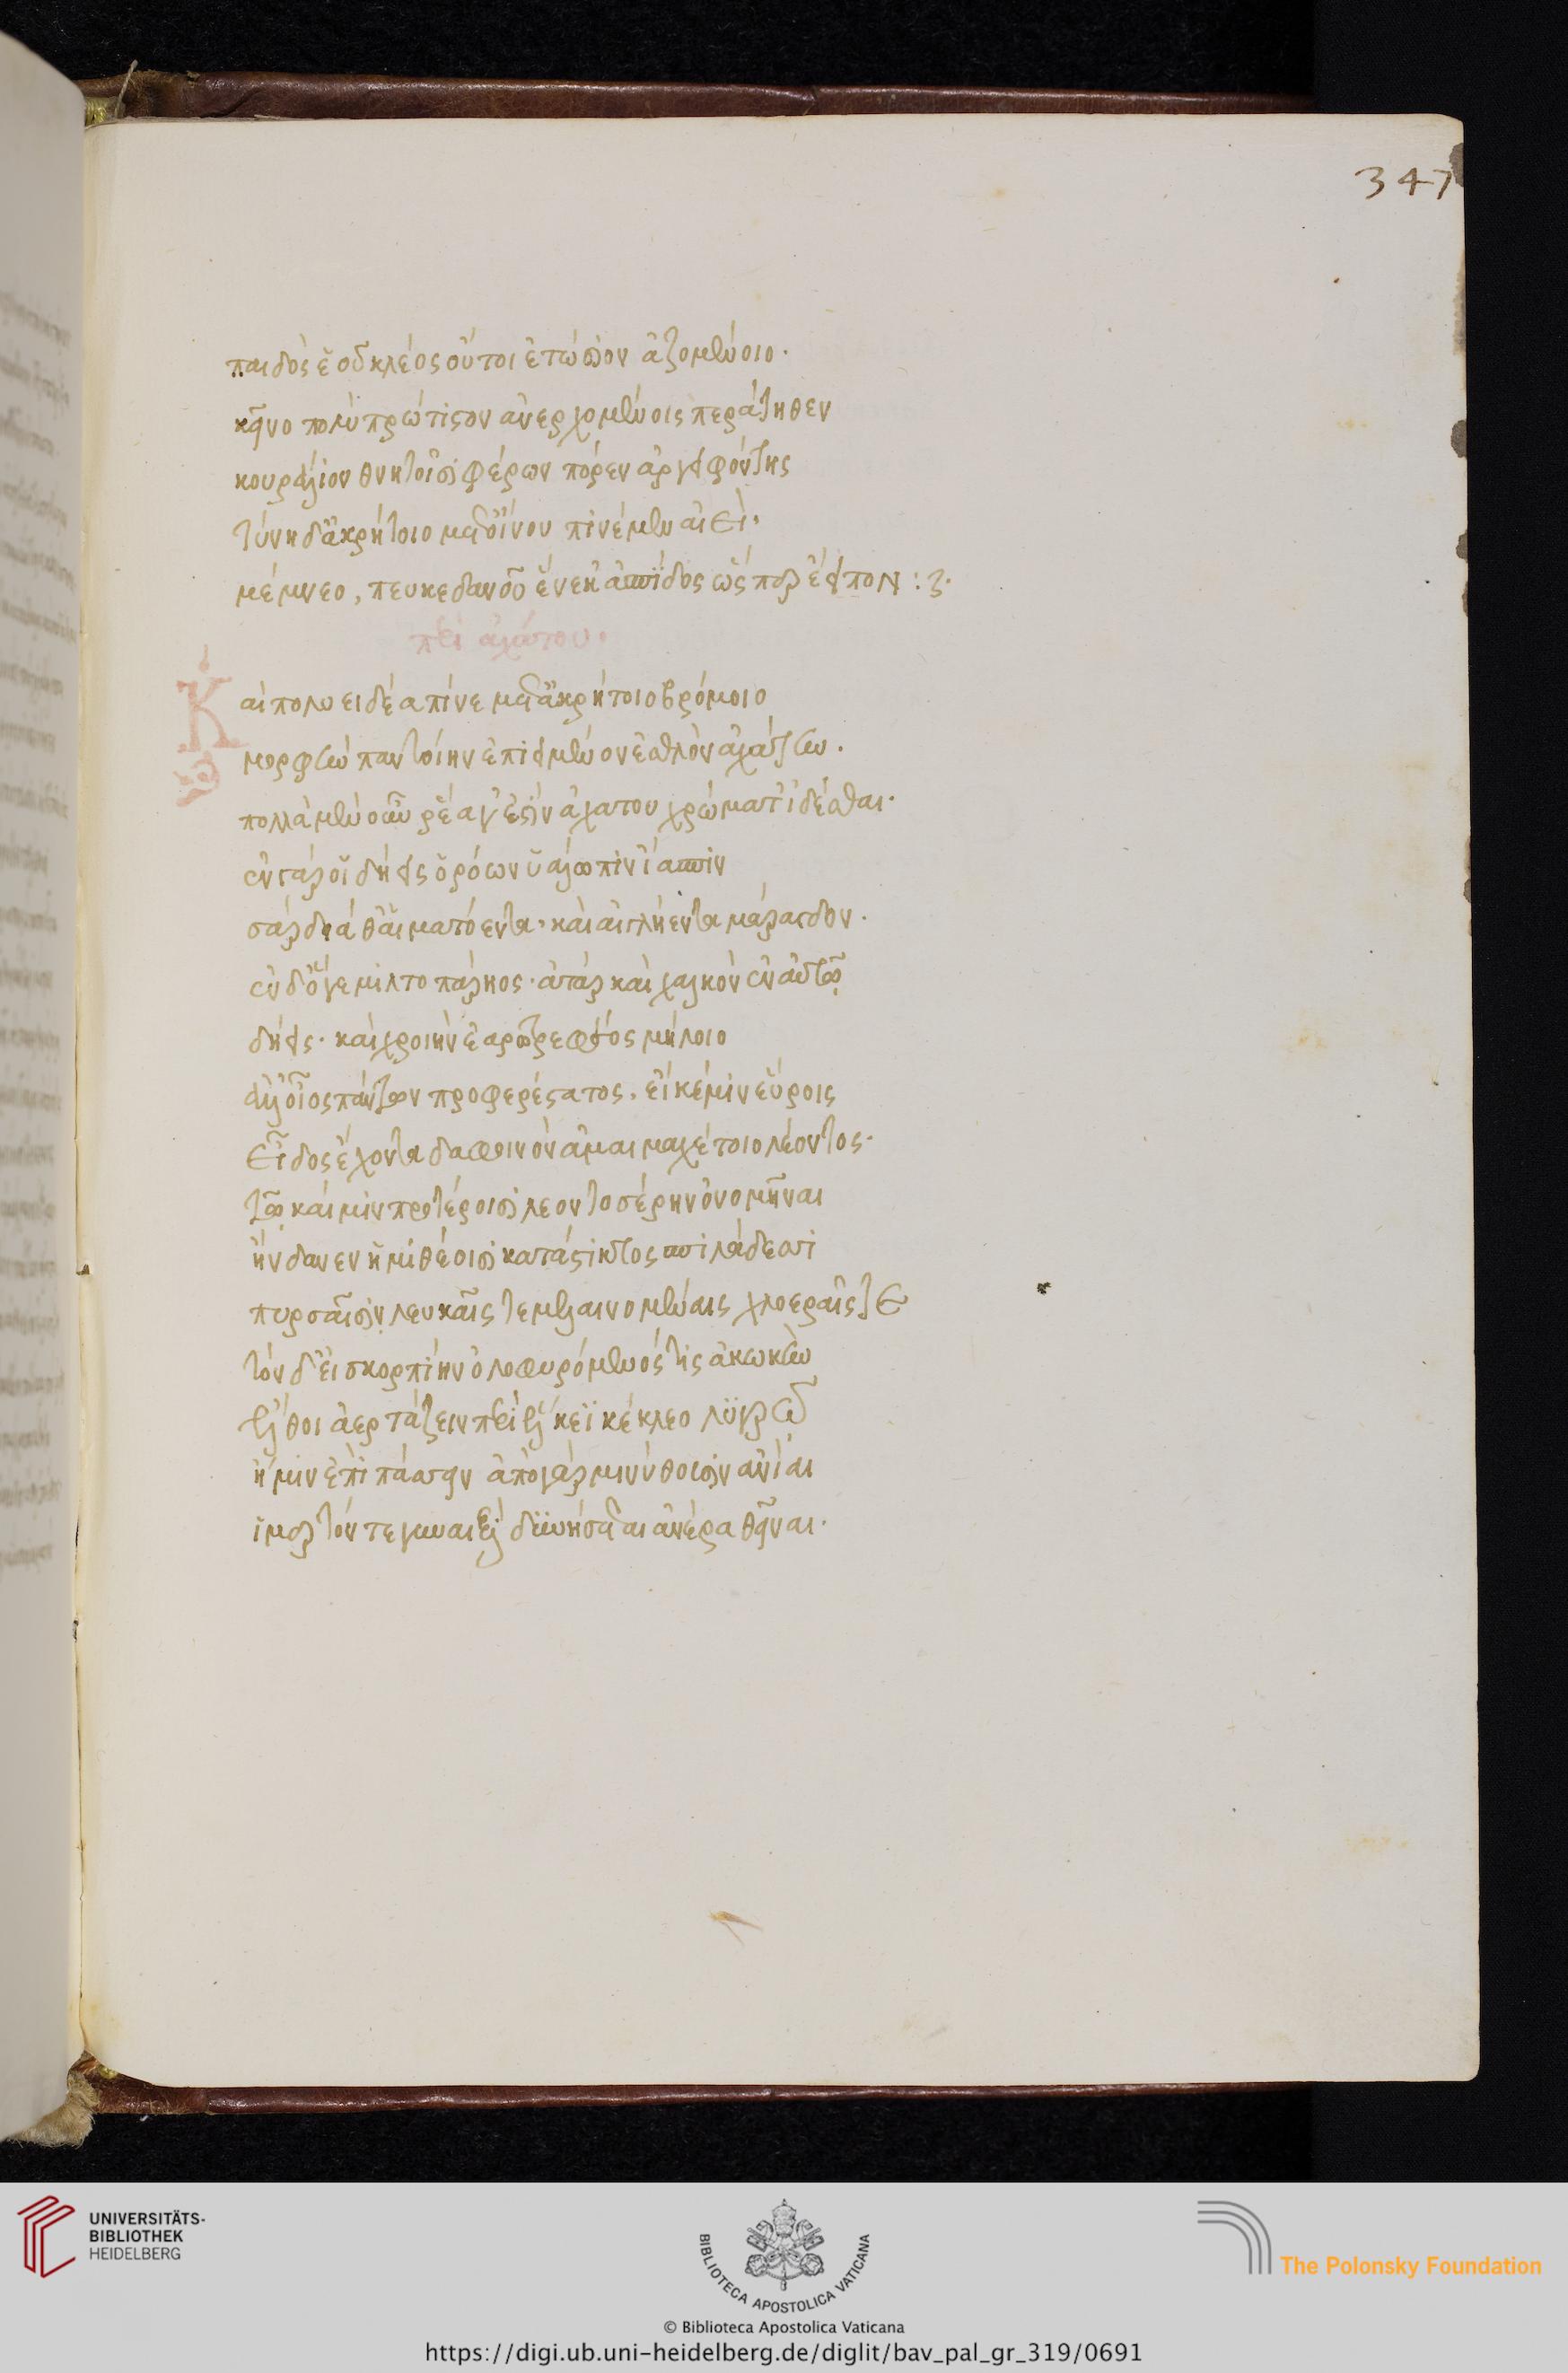 347
παιδὸς ἑοῦ κλέος οὔτοι ἐτώσιον ἀζομένοιο·
κεῖνο πολὺ πρώτιστον ἀνερχομένοις περάτηθεν
κουράλιον θνητοῖσι φέρων πόρεν ἀργειφόντης
τύνη δ' ἀκρήτοιο μετ' οἴνου πινέμεν αἰεὶ·
μέμνεο, πευκεδανοῦ ἕνεκ' ἀσπίδος ὥς παρ ἔειπον :
περὶ ἀχάτου·
Καὶ πολυειδέα πίνε μετ' ἀκρήτοιο βρόμοιο
μορφὴν παντοίην ἐπιειμένον ἐσθλὸν ἀχάτην·
πολλὰ μὲν οὖν ῥέα γ' ἐστὶν ἀχάτου χρώματ' ἰδέσθαι·
ἐν γάρ οἱ δήεις ὁρόων ὑαλώπιν ἴασπιν
σάρδιά θ' αἱματόεντα· καὶ αἰγλήεντα μάραγδον·
ἐν δ' ὅγε μιλτοπάρηος· ἀτὰρ καὶ χαλκὸν ἐν αὐτῷ
δήεις· καὶ χροιὴν ἐαροτρεφέος μήλοιο
ἀλλ' οἷος πάντων προφερέστατος, εἴ κέ μιν εὕροις
εἶδος ἔχοντα δαφοινὸν ἀμαιμακέτοιο λέοντος·
τῷ καί μιν προτέροισι λεοντοσέρην ὀνομῆναι
ἥνδανεν ἡμιθέοισι κατάστικτος σπιλάδεσσι
πυρσαῖσιν λευκαῖς τε μελαινομέναις χλοεραῖς τε
τὸν δ' εἰ σκορπίην ὀλοφυρόμενός τις ἀκωκὴν
ἔλθοι ἀερτάζειν περὶ ἕλκεϊ κέκλεο λυγρῷ
ἤ μιν ἐπιπάσσειν ἀπὸ γὰρ μινύθουσιν ἀνίαι
ἱμερτόν τε γυναιξὶ δυνήσεται ἀνέρα θεῖναι·
UNIVERSITÄTS-
BIBLIOTHEK
HEIDELBERG
BIBLIOTECA APOSTOLICA VATICANA
The Polonsky Foundation
© Biblioteca Apostolica Vaticana
https://digi.ub.uni-heidelberg.de/diglit/bav_pal_gr_319/0691